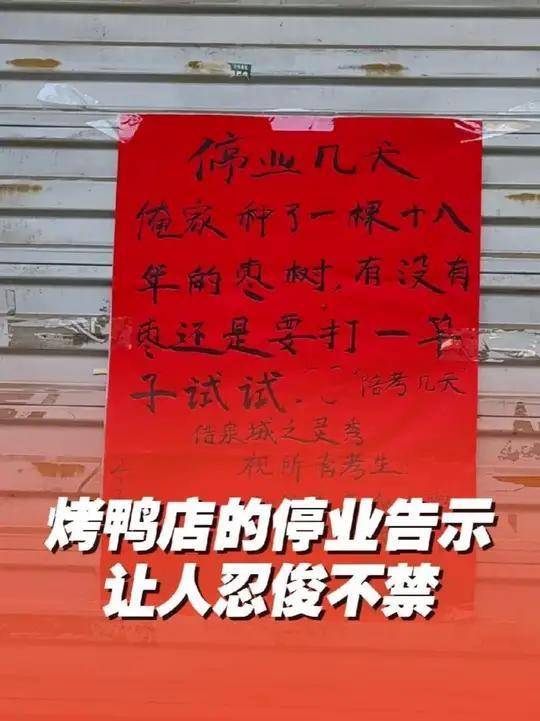 停业几天
俺家种了一棵十八
年的枣树，有没有
枣还是要打一竿
子试试．陪考几天
借泉城之灵秀
祝所有考生
烤鸭店的停业告示
让人忍俊不禁